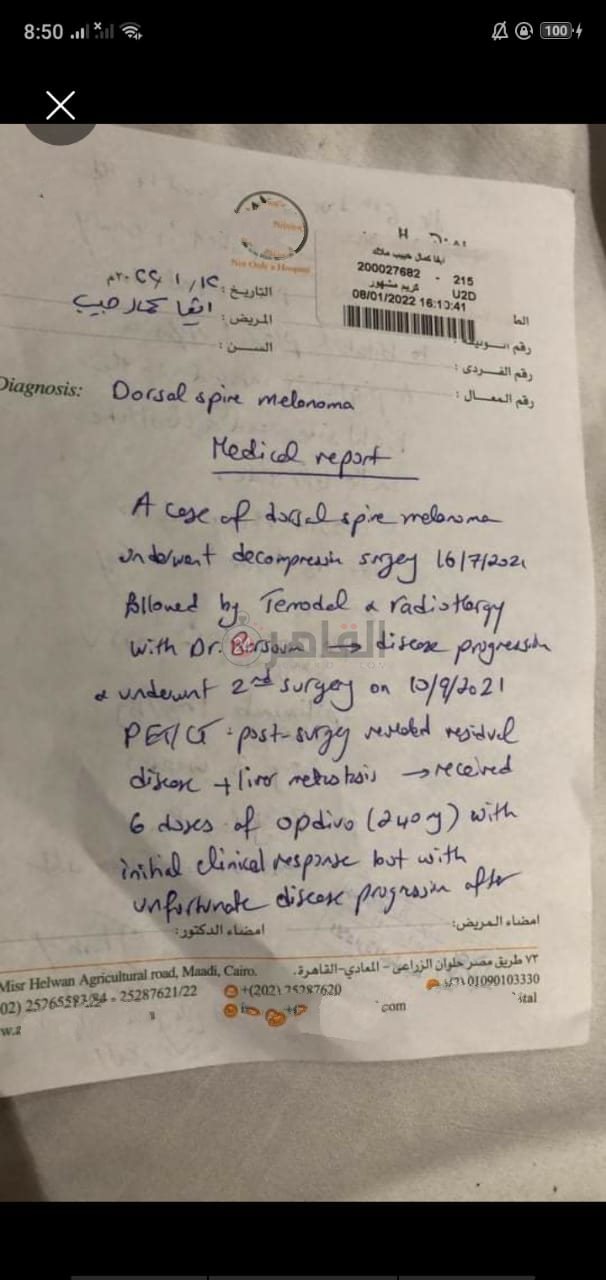 8:50
100
Not Only a Hospital
ايفا كمال حبيب ملاك
200027682 - 215
كريم مشهور U2D
08/01/2022 16:10:41
التاريخ : ٢٠٢٢ / ١ / ١٢م
المريض : ايفا كمال حبيب
السن :
رقم الفردى :
Diagnosis: Dorsal spine melanoma
Medical report
A case of dorsal spine melanoma
underwent decompression surgery 16/7/2021
followed by Temodal & radiotherapy
with Dr. Barsoum → disease progression
& underwent 2nd surgery on 10/9/2021
PET/CT post-surgery revealed residual
disease + liver metastasis → received
6 doses of opdivo (240mg) with
initial clinical response but with
unfortunate disease progression after
امضاء الدكتور: امضاء المريض:
Misr Helwan Agricultural road, Maadi, Cairo. ٧٣ طريق مصر حلوان الزراعى - المعادي-القاهرة.
- 25287621/22 +(202) 25287620 01090103330
.com
القاهرة